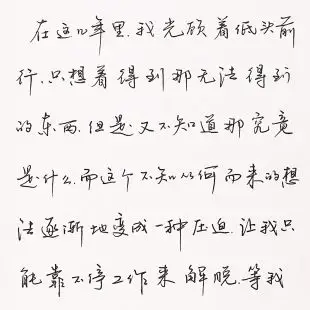 在这几年里,我光顾着低头前
行,只想着得到那无法得到
的东西,但是又不知道那究竟
是什么,而这个不知从何而来的想
法逐渐地变成一种压迫,让我只
能靠不停工作来解脱,等我